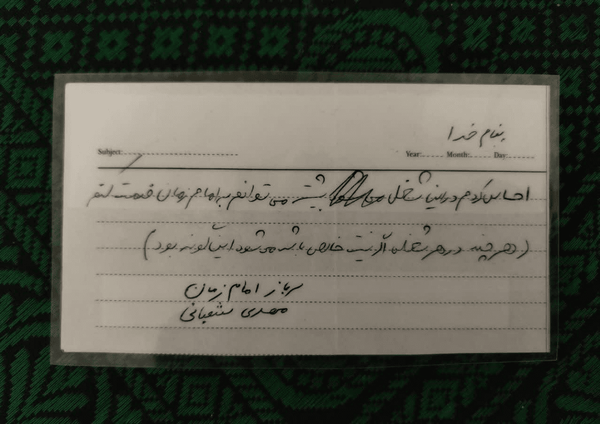 بنام خدا
Subject: Year: Month: Day:
احساس کردم در این شغل بیشتر می توانم به امام زمان خدمت کنم
(هر چند در هر شغلی اگر نیت خالص باشد می شود اینگونه بود)
سرباز امام زمان
مهدی شعبانی